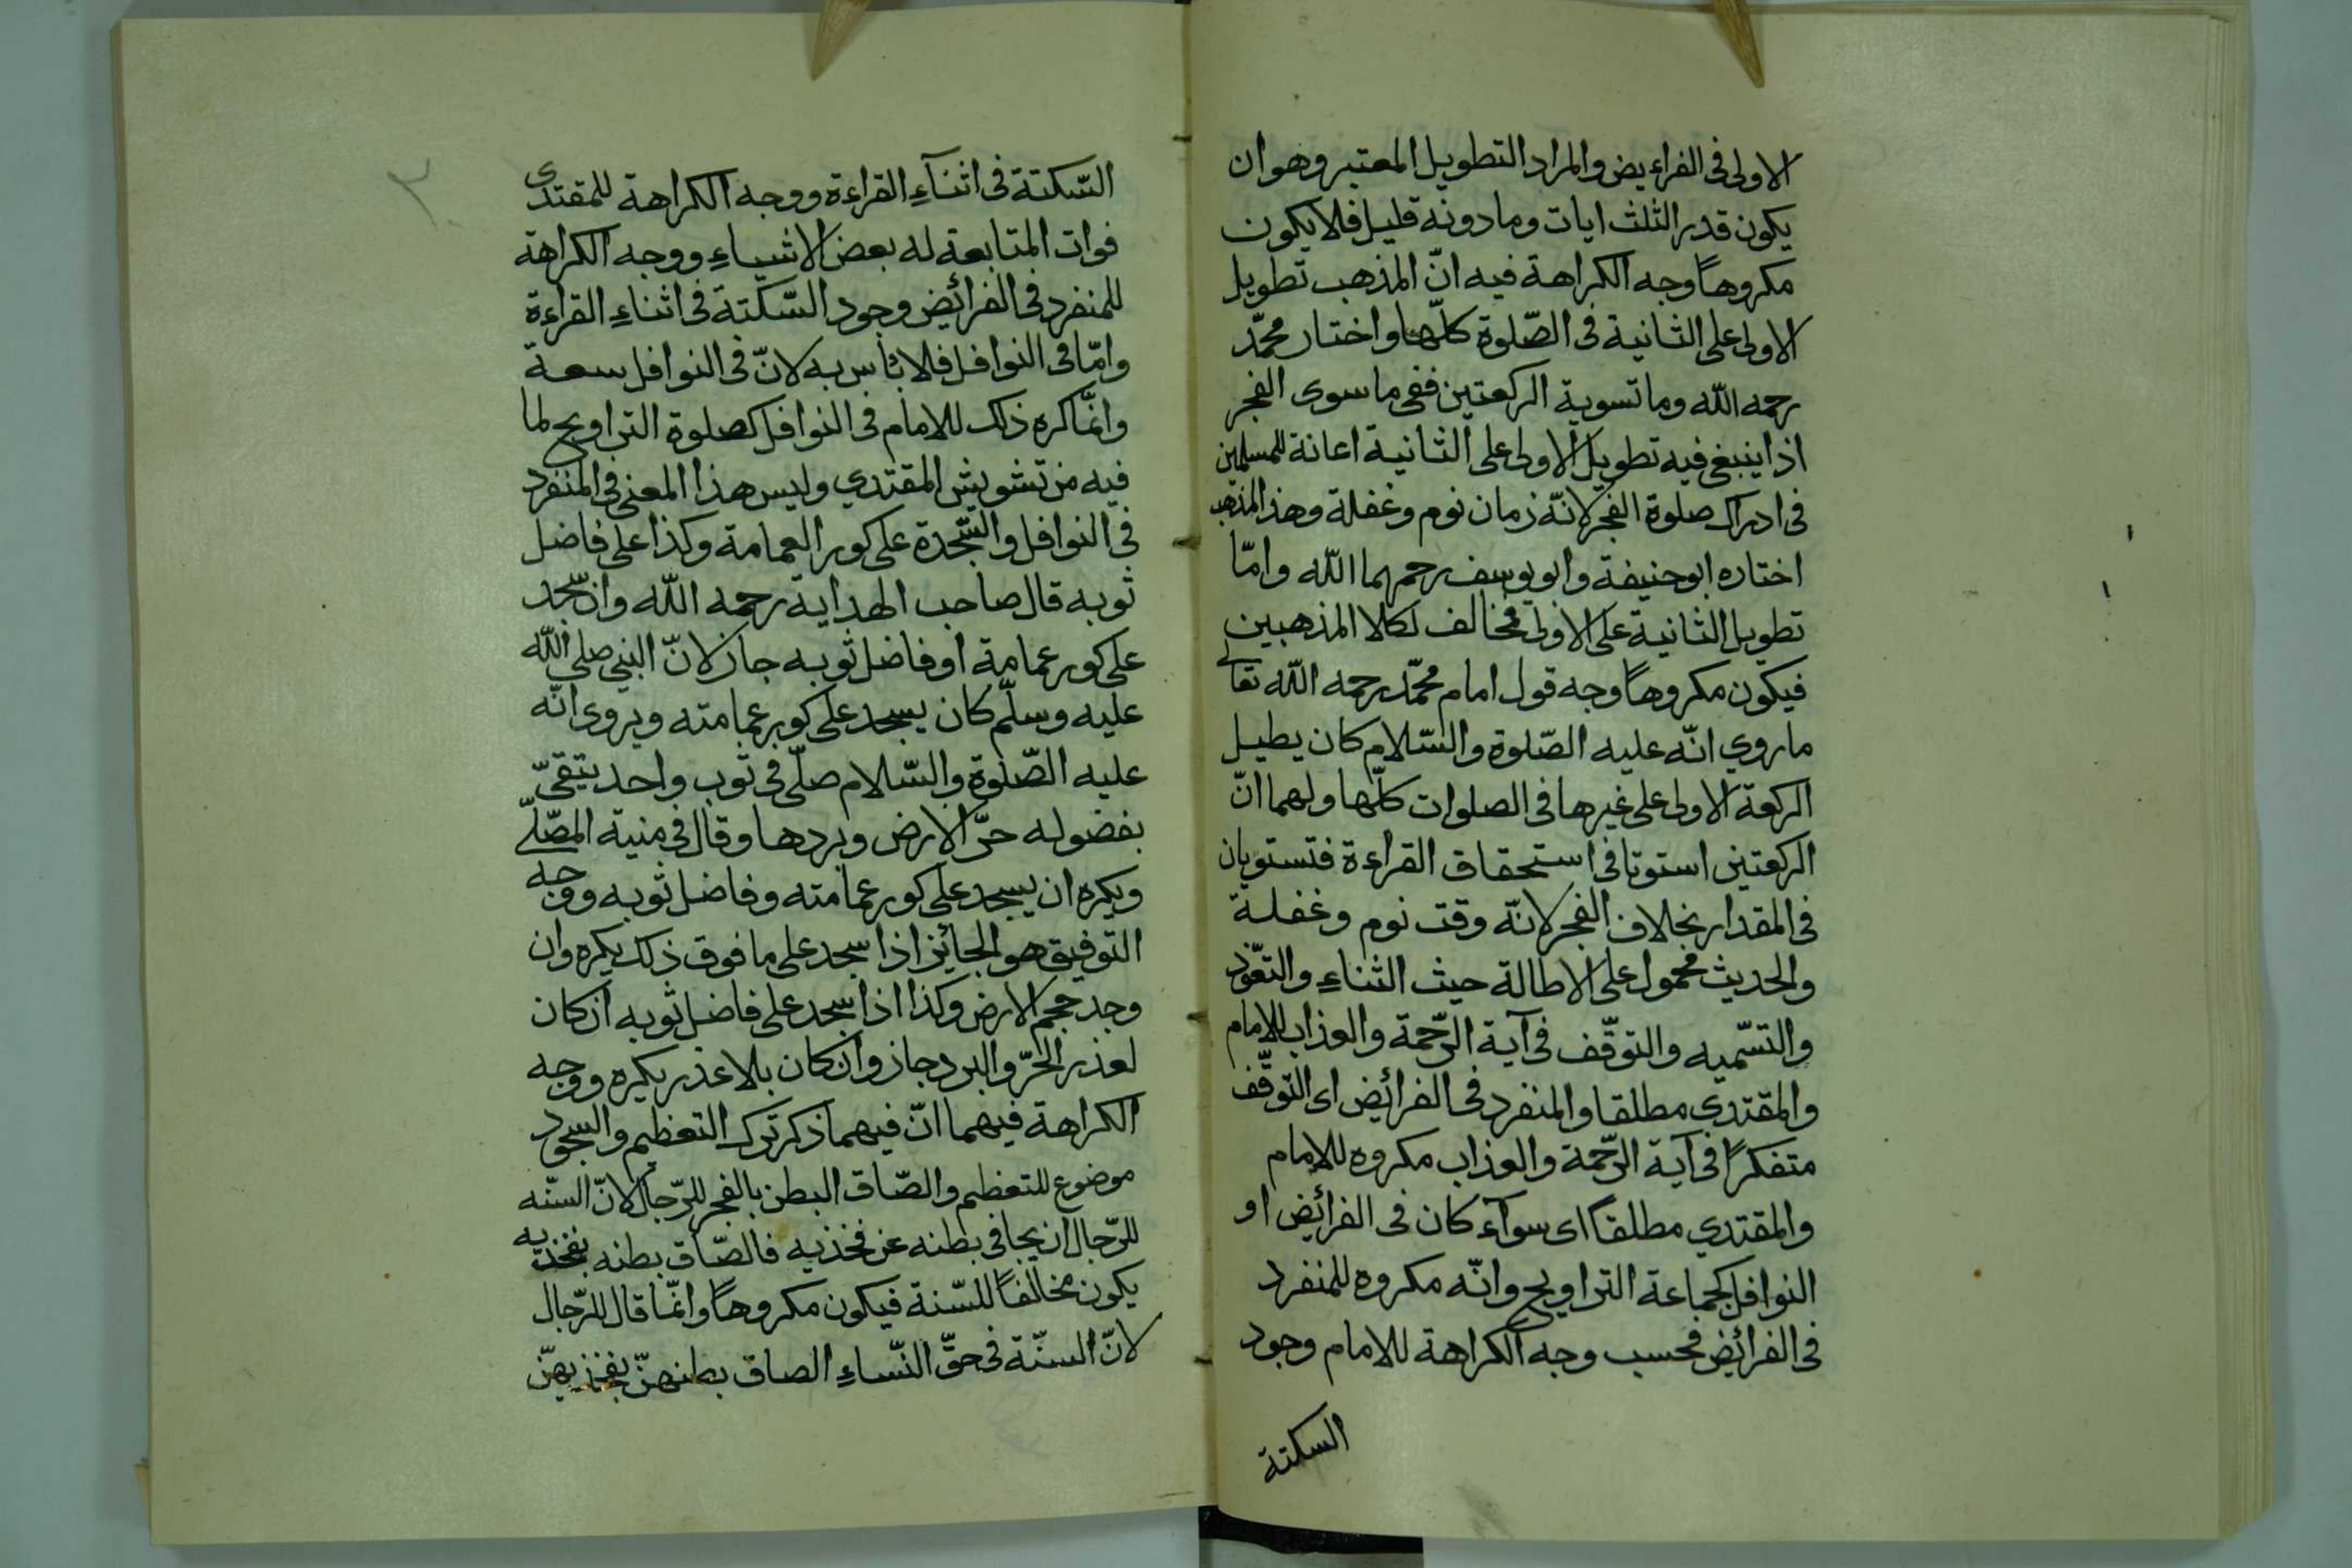 الاولى فى الفرايض والمراد التطويل المعتبر وهو ان
يكون قدر الثلث ايات وما دونه قليل فلا يكون
مكروهاً وجه الكراهة فيه انّ المذهب تطويل
الاولى على الثانية فى الصّلوة كلّها واختار محمّد
رحمه الله وما تسوية الركعتين ففى ما سوى الفجر
اذا ينبغى فيه تطويل الاولى على الثانية اعانة للمسلمين
فى ادراك صلوة الفجر لانّه زمان نوم وغفلة وهذا المذهب
اختاره ابو حنيفة وابو يوسف رحمهما الله وامّا
تطويل الثانية على الاولى فمخالف لكلا المذهبين
فيكون مكروهاً وجه قول امام محمّد رحمه الله تعالى
ما روي انّه عليه الصّلوة والسّلام كان يطيل
الركعة الاولى على غيرها فى الصلوات كلّها ولهما انّ
الركعتين استوتا فى استحقاق القراءة فتستويان
فى المقدار بخلاف الفجر لانّه وقت نوم وغفلة
والحديث محمول على الاطالة حيث الثناء والتعوّذ
والتسّميه والتوقّف فى آية الرّحمة والعذاب للامام
والمقتدي مطلقا والمنفرد فى الفرائض اى التوقّف
متفكراً فى آية الرّحمة والعذاب مكروه للامام
والمقتدي مطلقاً اى سوآء كان فى الفرائض او
النوافل كجماعة التراويح وانّه مكروه للمنفرد
فى الفرائض فحسب وجه الكراهة للامام وجود
السكتة
٣٠
السّكتة فى اثنآء القراءة ووجه الكراهة للمقتدى
فوات المتابعة له بعض الاشياء ووجه الكراهة
للمنفرد فى الفرائض وجود السّكتة فى اثناء القراءة
وامّا فى النوافل فلا بأس به لانّ فى النوافل سعة
وانّما كره ذلك للامام فى النوافل كصلوة التراويح لما
فيه من تشويش المقتدي وليس هذا المعنى فى المنفرد
فى النوافل والسّجدة على كور العمامة وكذا على فاضل
ثوبه قال صاحب الهداية رحمه الله وان سّجد
على كور عمامة او فاضل ثوبه جاز لانّ النبي صلى الله
عليه وسلّم كان يسجد على كور عمامته ويروى انّه
عليه الصّلوة والسّلام صلّى فى ثوب واحد يتقىّ
بفضوله حرّ الارض وبردها وقال فى منية المصّلّى
ويكره ان يسجد على كور عمامته وفاضل ثوبه ووجه
التوفيق هو الجائز اذا سجد على ما فوق ذلك يكره وان
وجد حجم الارض وكذا اذا سجد على فاضل ثوبه ان كان
لعذر الحرّ والبرد جاز وان كان بلا عذر يكره ووجه
الكراهة فيهما انّ فيهما ذكر ترك التعظيم والسجود
موضوع للتعظيم والصّاق البطن بالفجر للرّجال لانّ السنّه
للرّجال ان يجافى بطنه عن فخذيه فالصّاق بطنه بفخذيه
يكون مخالفاً للسّنة فيكون مكروهاً وانّما قال للرّجال
لانّ السنّة فى حقّ النّساء الصاق بطنهنّ بفخذيهنّ